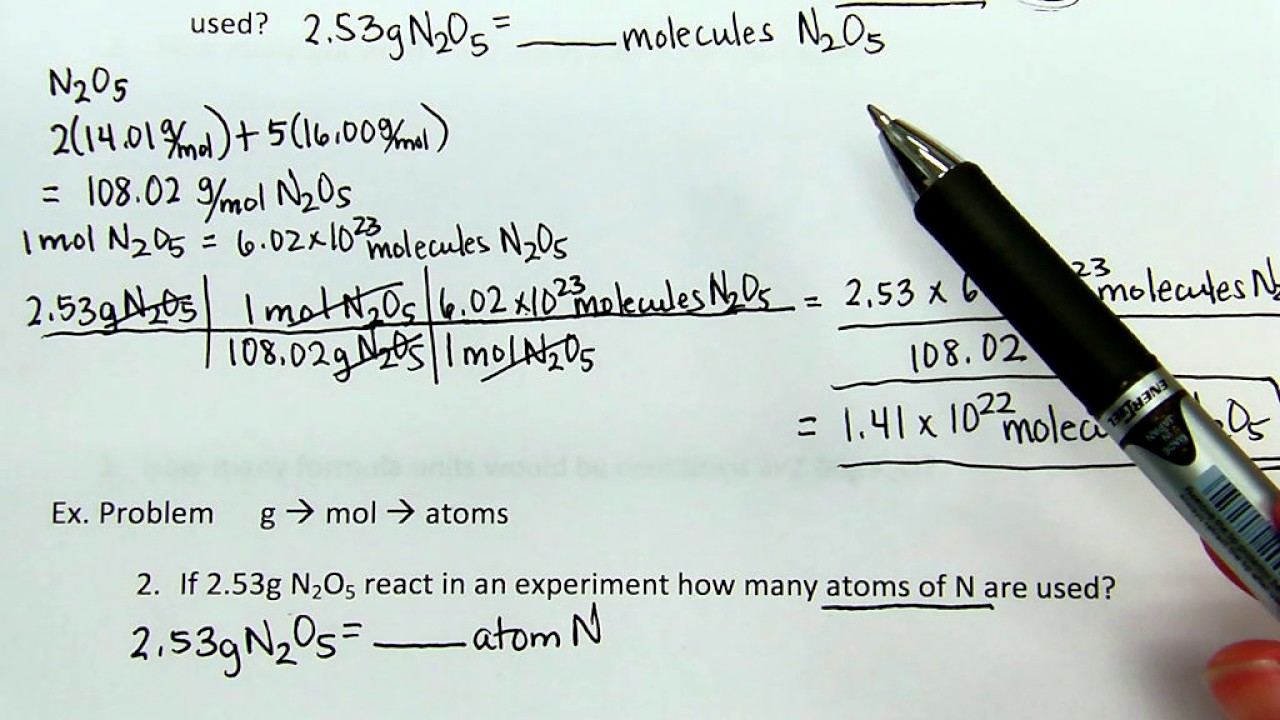 used? 2.53gN₂O₅ = ____ molecules N₂O₅
N₂O₅
2(14.01g/mol) + 5(16.00g/mol)
= 108.02 g/mol N₂O₅
1 mol N₂O₅ = 6.02×10²³ molecules N₂O₅
2.53g N₂O₅ | 1 mol N₂O₅ | 6.02×10²³ molecules N₂O₅ = 2.53 × 6 23 molecules N₂
108.02g N₂O₅ | 1 mol N₂O₅ 108.02
= 1.41 × 10²² O₅
Ex. Problem g → mol → atoms
2. If 2.53g N₂O₅ react in an experiment how many atoms of N are used?
2.53gN₂O₅ = ____ atom N